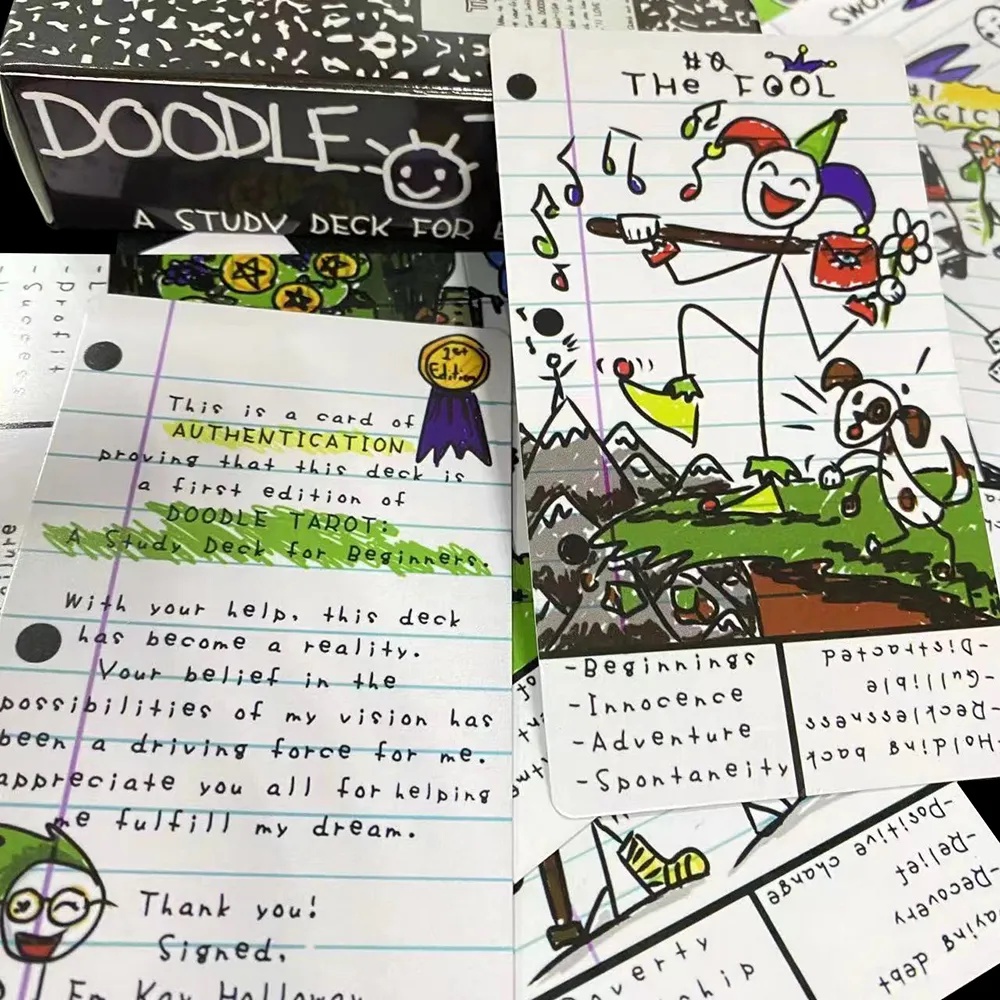 DOODLE
A STUDY DECK FOR
1st
Edition
This is a card of
AUTHENTICATION
proving that this deck is
a first edition of
DOODLE TAROT:
A Study Deck for Beginners.
With your help, this deck
has become a reality.
Your belief in the
possibilities of my vision has
been a driving force for me.
appreciate you all for helping
me fulfill my dream.
Thank you!
Signed,
Em Kay Holloway
#0
THe FOOL
-Beginnings
-Innocence
-Adventure
-Spontaneity
-Distracted
-Gullible
-Recklessness
-Holding back
#1
-Positive change
-Relief
-Recovery
debt